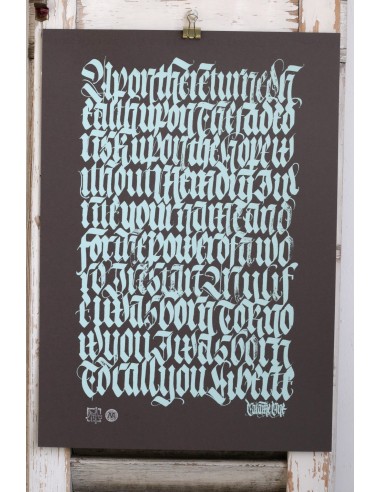 Uponthereturnedh
ealthuponthefaded
riskuponthehopew
ithoutmemoryIw
riteyournameand
forthepowerofawo
rdIresignmylif
eIwasborntokno
wyouIwasborn
tocallyouliberté